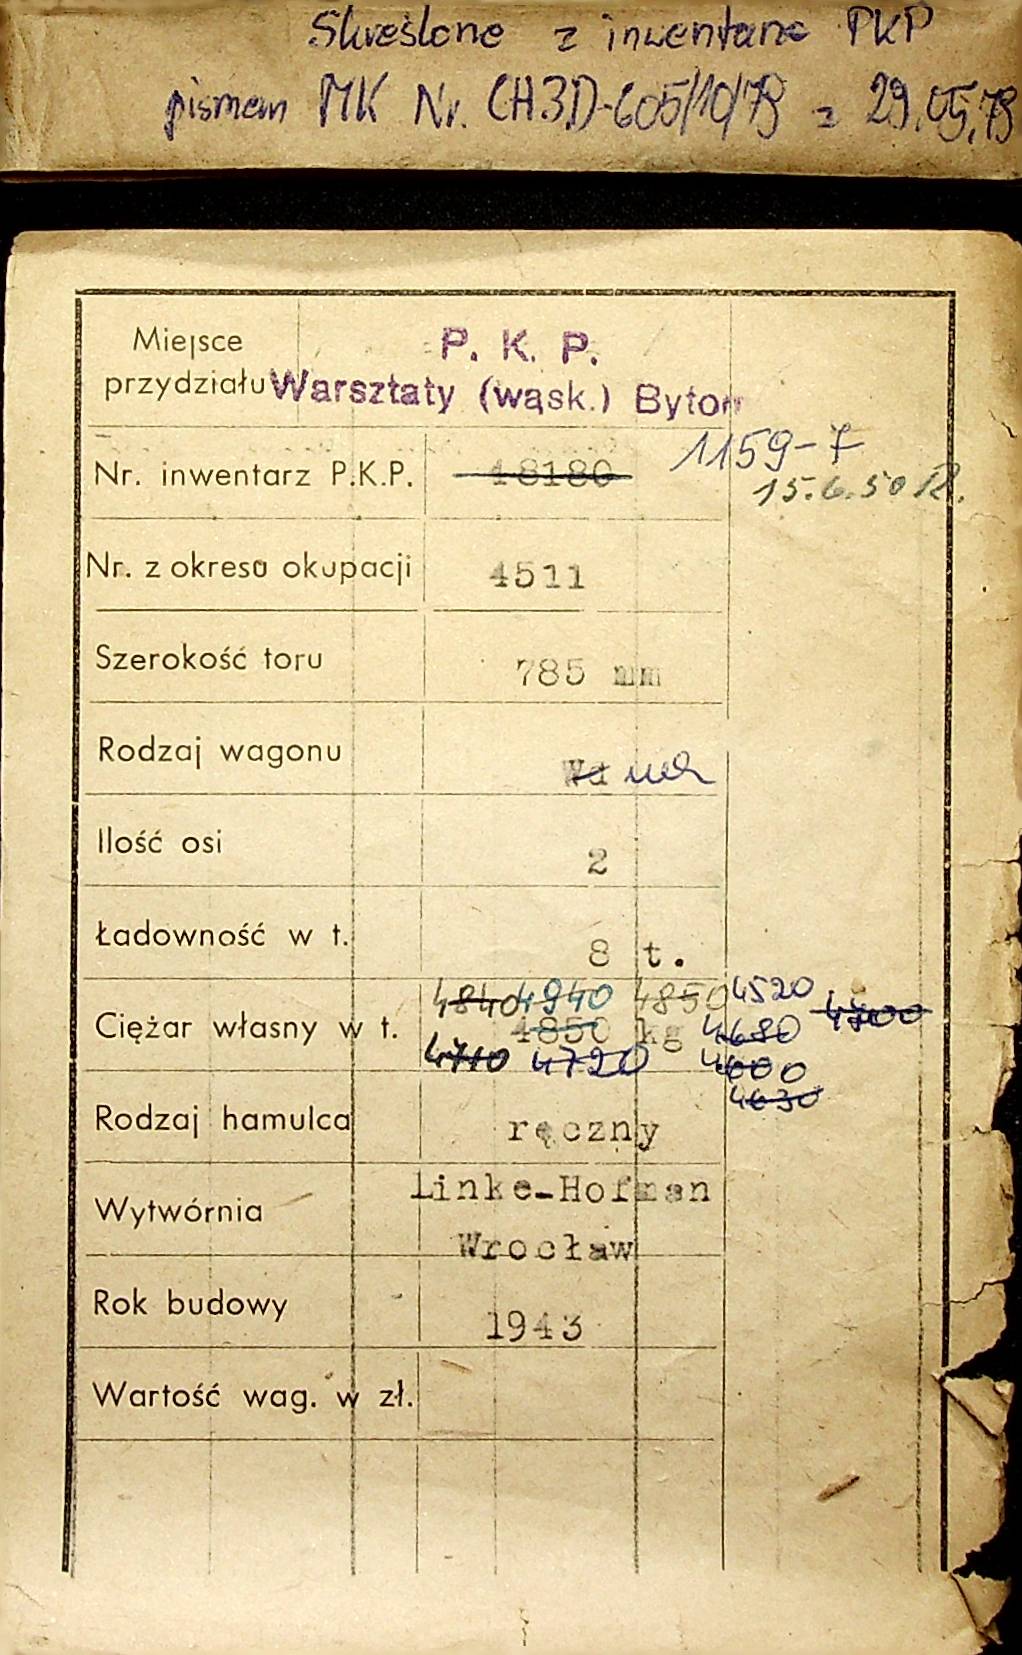 Skreślone z inwentarza PKP
pismem MK Nr. CH3D-605/10/79 z 29.05.79
Miejsce
przydziału
P. K. P.
Warsztaty (wąsk.) Bytom
Nr. inwentarz P.K.P. 18180 1159-7
15.6.50
Nr. z okresu okupacji 4511
Szerokość toru 785 mm
Rodzaj wagonu Wd
Ilość osi 2
Ładowność w t. 8 t.
4840 4940 4850 4520
Ciężar własny w t. 4850 kg 4680
4710 4720 4600
4630
Rodzaj hamulca ręczny
Wytwórnia Linke-Hofman
Wrocław
Rok budowy 1943
Wartość wag. w zł.